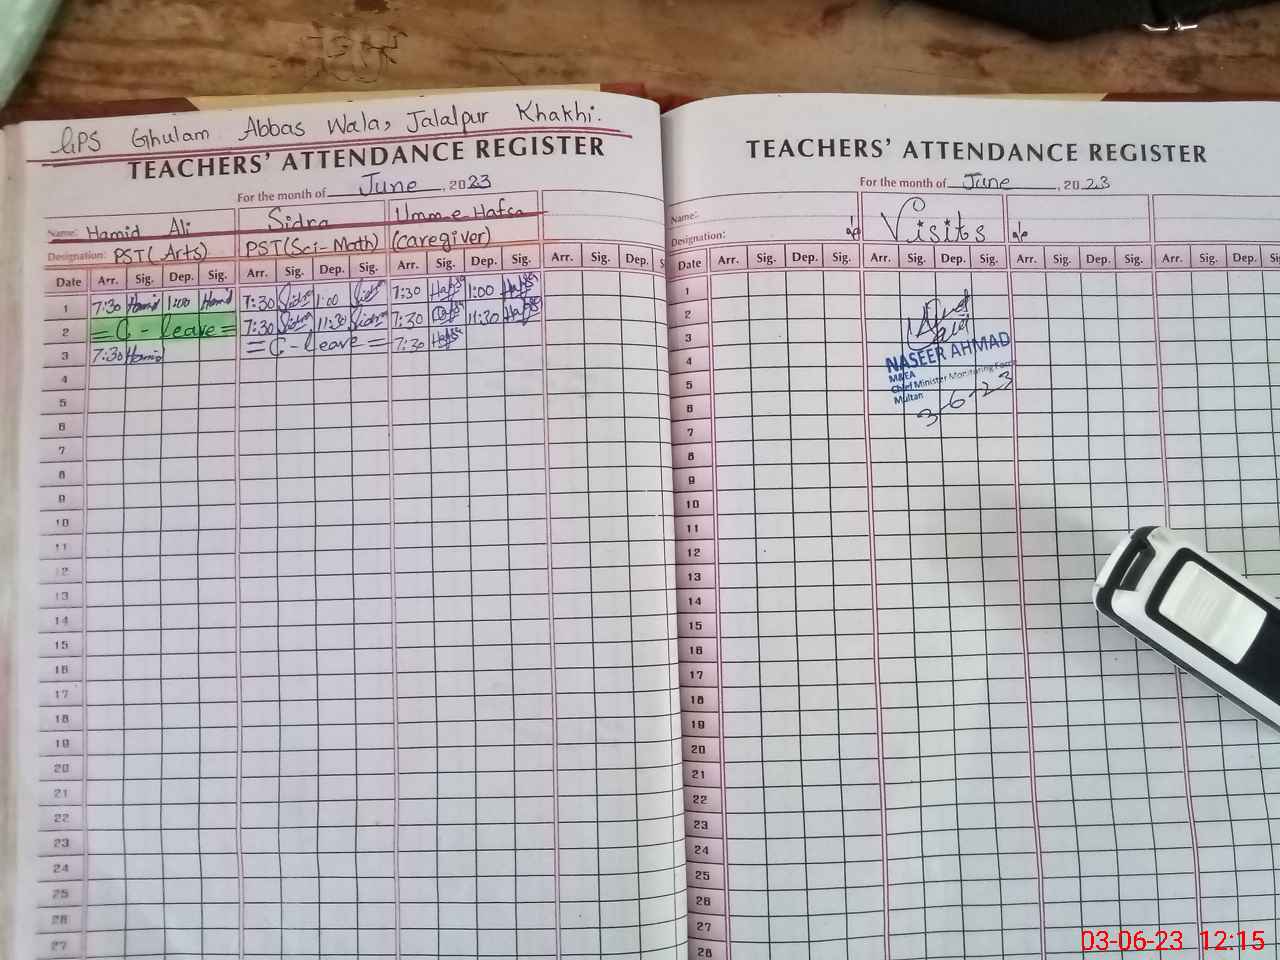 GPS Ghulam Abbas Wala, Jalalpur Khakhi.
TEACHERS' ATTENDANCE REGISTER
For the month of June, 2023
Name: Hamid Ali Sidra Umm-e-Hafsa
Designation: PST(Arts) PST(Sci-Math) (caregiver)
Date Arr. Sig. Dep. Sig. Arr. Sig. Dep. Sig. Arr. Sig. Dep. Sig. Arr. Sig. Dep. S
1 7:30 Hamid 1:00 Hamid 7:30 Sidra 1:00 Sidra 7:30 Hafsa 1:00 Hafsa
2 = C - leave = 7:30 Sidra 11:30 Sidra 7:30 Hafsa 11:30 Hafsa
3 7:30 Hamid = C - leave = 7:30 Hafsa
4
5
6
7
8
9
10
11
12
13
14
15
16
17
18
19
20
21
22
23
24
25
26
27
TEACHERS' ATTENDANCE REGISTER
For the month of June, 2023
Name:
Visits
Designation:
Date Arr. Sig. Dep. Sig. Arr. Sig. Dep. Sig. Arr. Sig. Dep. Sig. Arr. Sig. Dep.
1
2
3
4
5
6
7
8
9
10
11
12
13
14
15
16
17
18
19
20
21
22
23
24
25
26
27
28
NASEER AHMAD
M&EA
Chief Minister Monitoring Force
Multan
3-6-23
03-06-23 12:15